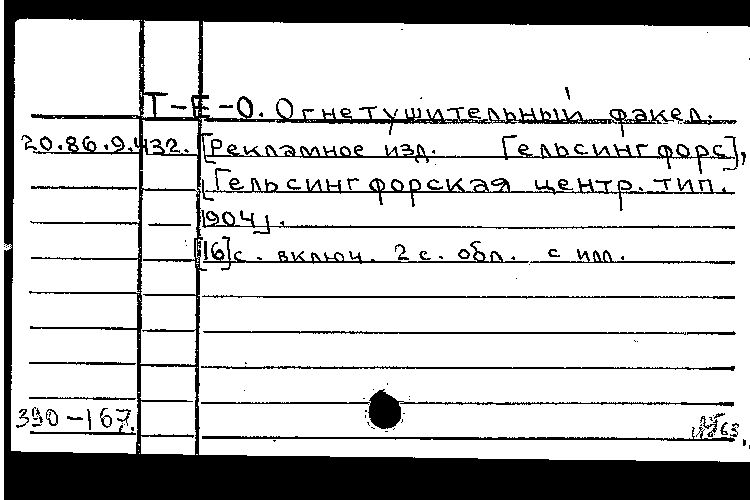 Т-Е-О. Огнетушительный факел.
20.86.9.432. [Рекламное изд. Гельсингфорс],
[Гельсингфорская центр. тип.
1904].
[16]с. включ. 2 с. обл. с илл.
390-167.
63.